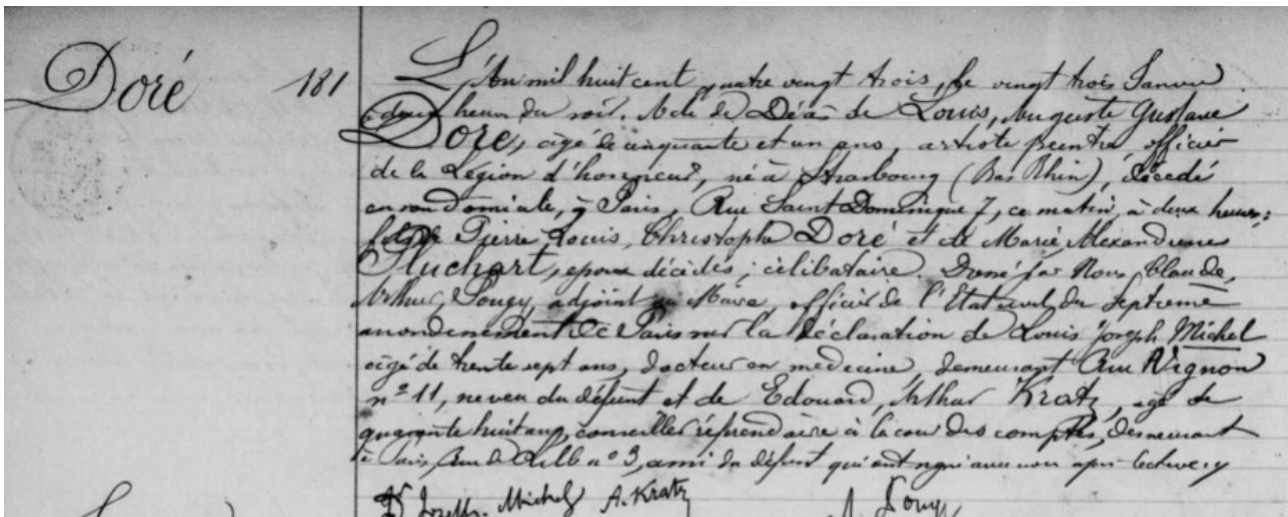 Doré 181
L'An mil huit cent quatre vingt trois, le vingt trois Janvier
à deux heures du soir. Acte de Décès de Louis, Auguste Gustave
Doré, âgé de cinquante et un ans, artiste peintre, officier
de la Légion d'honneur, né à Strasbourg (Bas Rhin), décédé
en son domicile, à Paris, Rue Saint Dominique 7, ce matin, à deux heures;
fils de Pierre Louis, Christophe Doré et de Marie Alexandrine
Pluchart, époux décédés; célibataire. Dressé par Nous, Claude,
Arthur Pougy, adjoint au Maire officier de l'Etat civil du Septième
arrondissement de Paris sur la déclaration de Louis Joseph Michel
âgé de trente sept ans, docteur en médecine, demeurant Rue Vignon
nº 11, neveu du défunt et de Edouard, Arthur Kratz, âgé de
quarante huit ans, conseiller référendaire à la cour des comptes, demeurant
à Paris, Rue de Lille nº 3, ami du défunt qui ont signé avec nous après lecture
Dr Joseph Michel A. Kratz A. Pougy